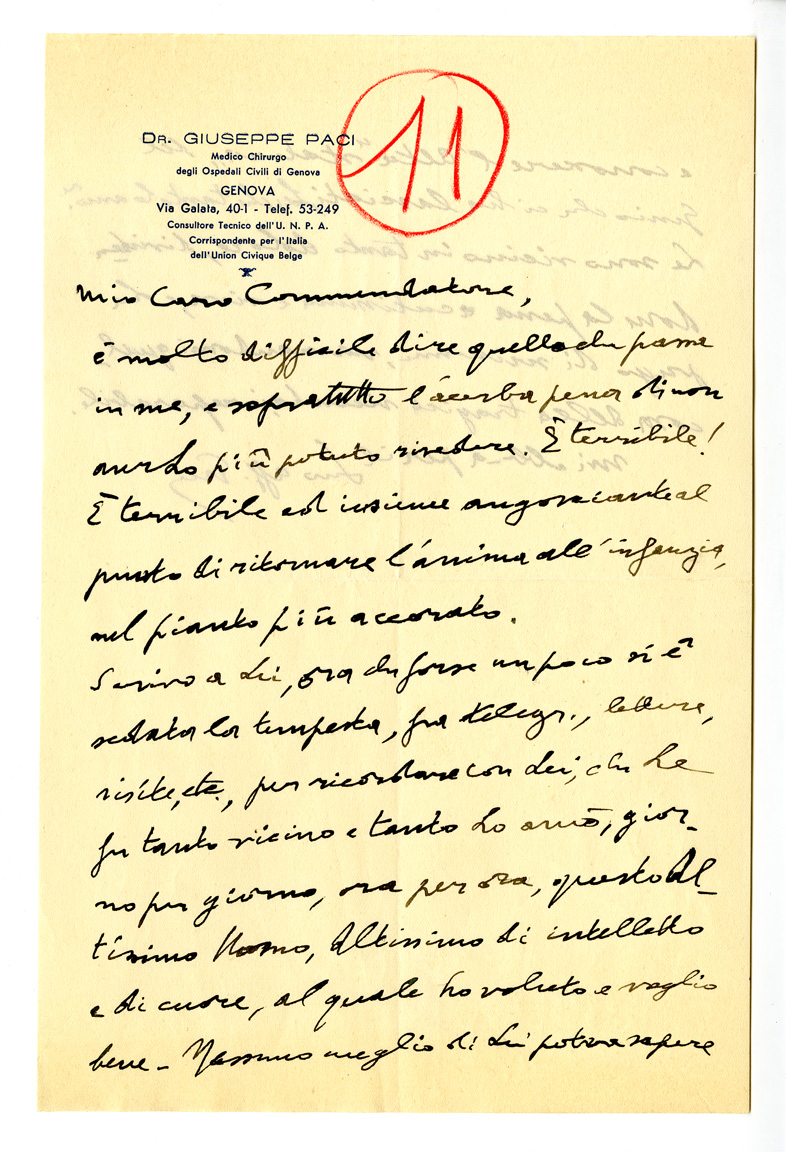 11
DR. GIUSEPPE PACI
Medico Chirurgo
degli Ospedali Civili di Genova
GENOVA
Via Galata, 40-1 - Telef. 53-249
Consultore Tecnico dell'U. N. P. A.
Corrispondente per l'Italia
dell'Union Civique Belge
Mio Caro Commendatore,
è molto difficile dire quello che passa
in me, e sopratutto l'acerba pena di non
averLo più potuto rivedere. È terribile!
È terribile ed insieme angosciante al
punto di ritornare l'anima all'infanzia,
nel pianto più accorato.
Scrivo a Lei, ora che forse un poco si è
sedata la tempesta, fra telegr., lettere,
visite, etc., per ricordare con Lei, che Le
fu tanto vicino e tanto Lo amò, gior-
no per giorno, ora per ora, questo Al-
tissimo Uomo, Altissimo di intelletto
e di cuore, al quale ho voluto e voglio
bene - Nessuno meglio di Lei poteva sapere